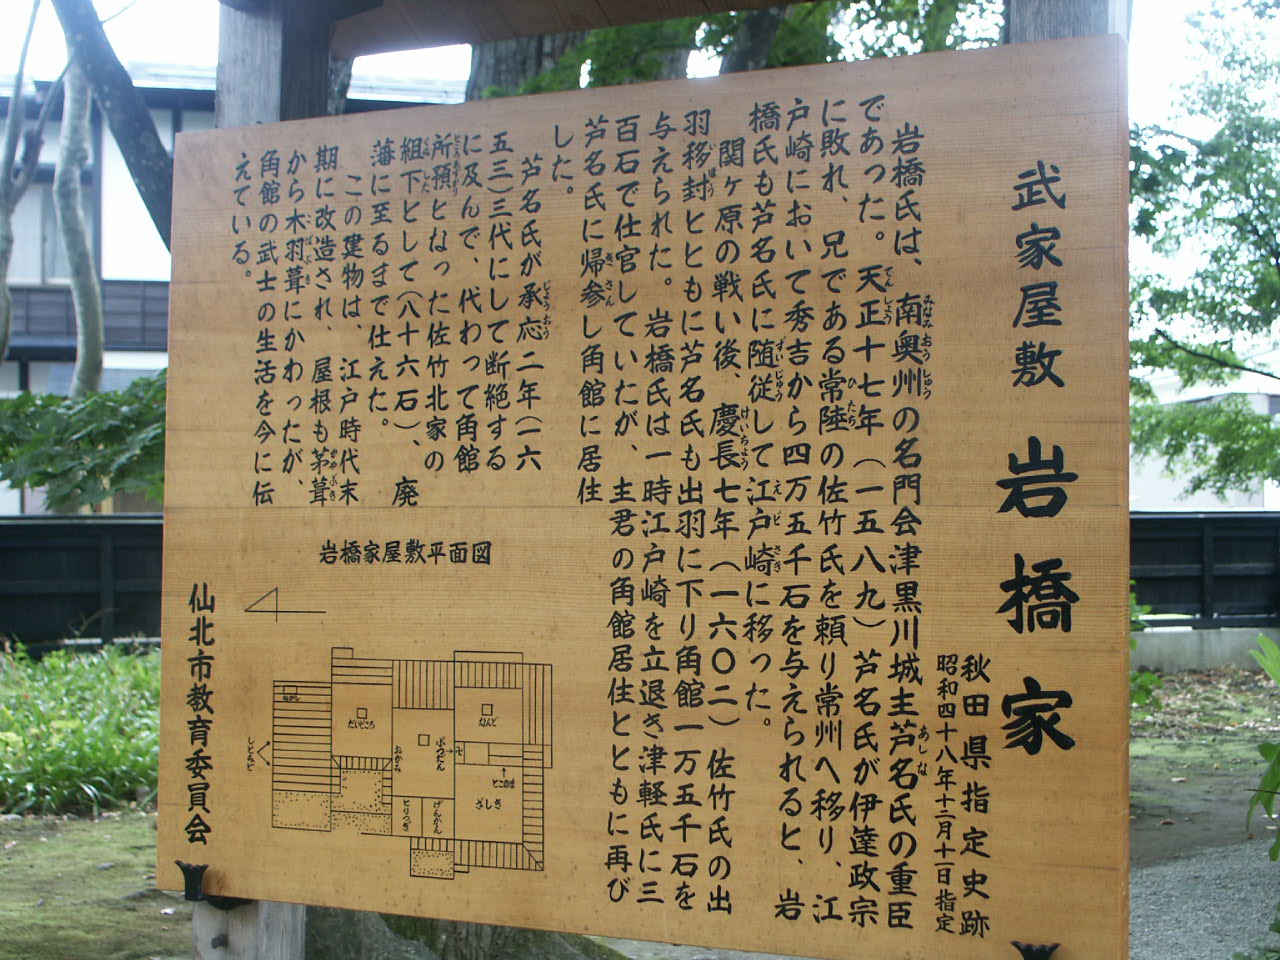 武家屋敷 岩橋家
秋田県指定史跡
昭和四十八年十二月十一日指定
岩橋氏は、南奥州の名門会津黒川城主芦名氏の重臣
であった。天正十七年（一五八九）芦名氏が伊達政宗
に敗れ、兄である常陸の佐竹氏を頼り常州へ移り、江
戸崎において秀吉から四万五千石を与えられると、岩
橋氏も芦名氏に随従して江戸崎に移った。
関ヶ原の戦い後、慶長七年（一六〇二）佐竹氏の出
羽移封とともに芦名氏も出羽に下り角館一万五千石を
与えられた。岩橋氏は一時江戸崎を立退き津軽氏に三
百石で仕官していたが、主君の角館居住とともに再び
芦名氏に帰参し角館に居住
した。
芦名氏が承応二年（一六
五三）三代にして断絶する
に及んで、代わって角館
所預となった佐竹北家の
組下として（八十六石）、廃
藩に至るまで仕えた。
この建物は、江戸時代末
期に改造され、屋根も茅葺
から木羽葺にかわったが、
角館の武士の生活を今に伝
えている。
岩橋家屋敷平面図
ながし
だいどころ
なんど
しとみど
おかみ
ぶつだん
とこのま
ざしき
とりつぎ
げんかん
仙北市教育委員会